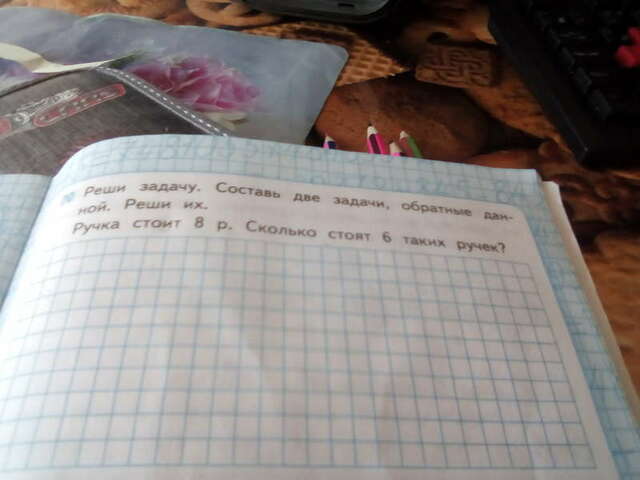 Реши задачу. Составь две задачи, обратные дан-
ной. Реши их.
Ручка стоит 8 р. Сколько стоят 6 таких ручек?